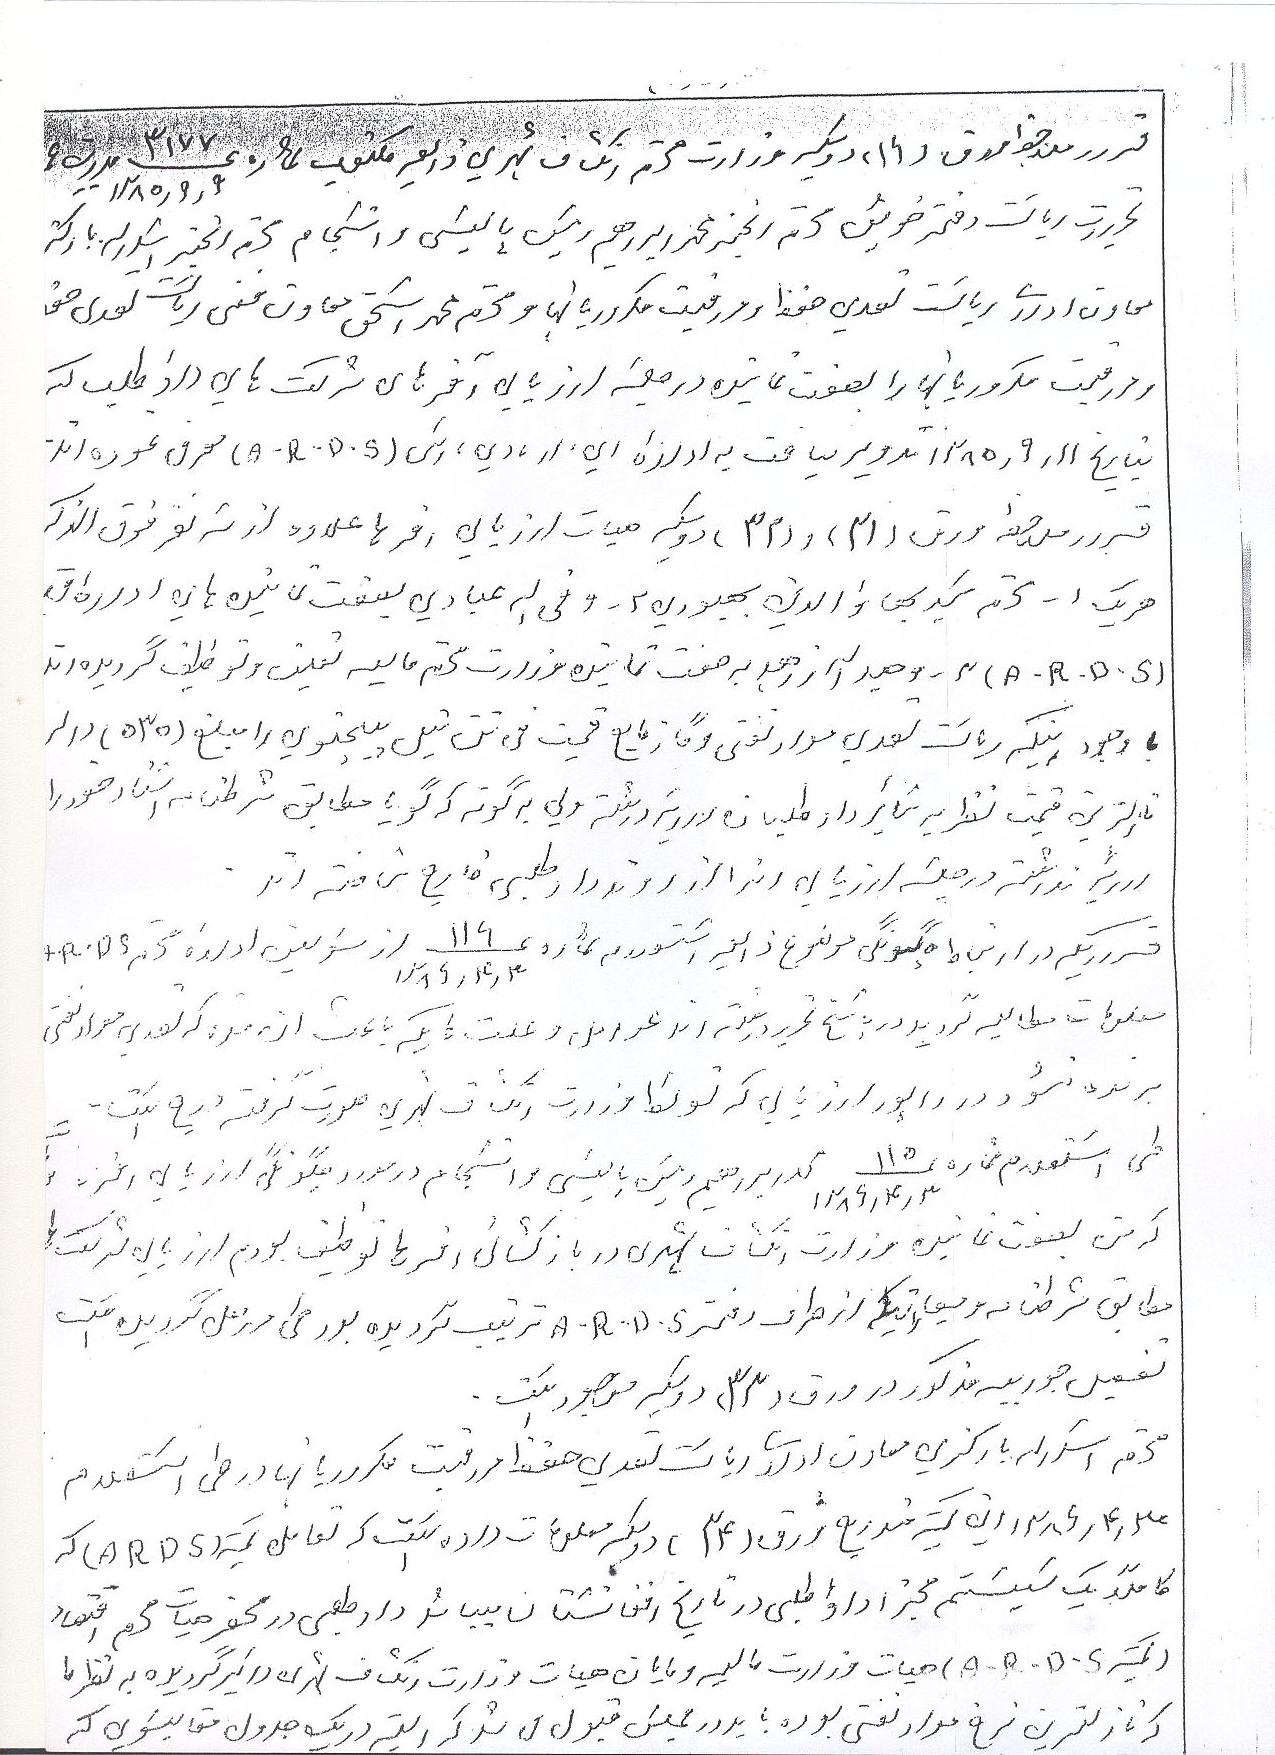 قرار ملاحظه ورق (۱۹) دوسیه وزارت محترم انکشاف شهری ذریعه مکتوب شماره ۳۱۷۷ مدیریت
۱۳۸۵ر۹ر۹
تحریرات ریاست دفتر خویش محترم انجنیر محمد ابراهیم رئیس پالیسی و انسجام محترم انجنیر اسدالله بارکزی
معاون اداری ریاست تصدی حفظ و مراقبت مکروریانها و محترم محمد اسحق معاون فنی ریاست تصدی حفظ
و مراقبت مکروریانها را بصفت نماینده در جلسه ارزیابی آفرهای شرکت های داوطلب که
بتاریخ ۱۱ر۹ر۱۳۸۵ تدویر میافت به اداره ای، ار، دی، اس (A-R-D-S) معرفی نموده اند
قرار ملاحظه ورق (۳۱) و (۳۲) دوسیه هیات ارزیابی افرها علاوه از سه نفر فوق الذکر
هریک ۱- محترم سید بها والدین جیبوری ۲- و فی الله عبادی بصفت نماینده های اداره
(A-R-D-S) ۳- وحیدالله به صفت نماینده وزارت محترم مالیه تعیین و توظیف گردیده اند
با وجود اینکه ریاست تصدی مواد نفتی و گاز مایع قیمت فی تن تیل را مبلغ (۵۳۵) دالر
نازلترین قیمت نظر به سائر داوطلبان ارایه داشته ولی به گونه که گویا مطابق شرطنامه اسناد خود را
ارایه نداشته در جلسه ارزیابی انرا از روند داوطلبی خارج ساخته اند.
قراریکه در ارتباط چگونگی موضوع ذریعه استعلام شماره ۱۱۶ از مسولین اداره محترم A-R-D-S
۱۳۸۶ر۴ر۳
معلومات مطالبه گردید در پاسخ تحریر داشته اند عوامل و علت هاییکه باعث ان شده که تصدی مواد نفتی
برنده نشود در راپور ارزیابی که توسط وزارت انکشاف شهری صورت گرفته درج است.
طی استعلام شماره ۱۱۵ محمد ابراهیم رئیس پالیسی و انسجام در مورد چگونگی ارزیابی افرها
۱۳۸۶ر۴ر۳
که من بصفت نماینده وزارت انکشاف شهری در بازگشائی افرها توظیف بودم ارزیابی شرکت ها
مطابق شرطنامه و معیاراتیکه از طرف دفتر A-R-D-S ترتیب گردیده بود طی مراحل گردیده است
تفصیل جوابیه مذکور در ورق (۳۳) دوسیه موجود است.
محترم اسدالله بارکزی معاون اداری ریاست تصدی حفظ و مراقبت مکروریانها در طی استعلام
۱۳۸۶ر۴ر۳ این کمیته مندرج ورق (۳۴) دوسیه معلومات داده است که تعامل کمیته (ARDS) که
کاملاً یک سیستم مجزا داوطلبی در تاریخ افغانستان میباشد داوطلبی در محضر هیات محترم اقتصاد
(کمیته A-R-D-S) هیات وزارت مالیه و مایان هیات وزارت انکشاف شهری دائر گردیده به نظر ما
که نازلترین نرخ مواد نفتی بوده باید در مجلس قبول می شد که البته در یک جدول مقایسوی که